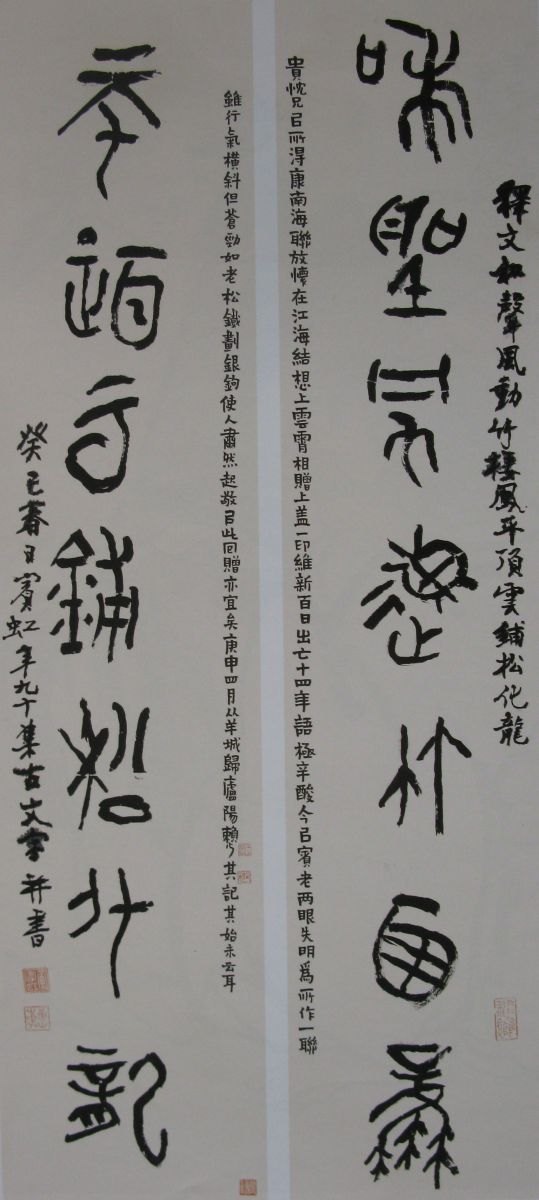 釋文和聲風動竹棲鳳平頂雲鋪松化龍
和聲風動竹棲鳳
貴忱兄㠯所得康南海聯放懷在江海結想上雲霄相贈上蓋一印維新百日出亡十四年語極辛酸今㠯賓老兩眼失明爲所作一聯
雖行氣橫斜但蒼勁如老松鐵劃銀鉤使人肅然起敬㠯此回贈亦宜矣庚申四月从羊城歸廬陽賴少其記其始末云耳
平頂雲鋪松化龍
癸巳暮春日賓虹年九十集古文字并書